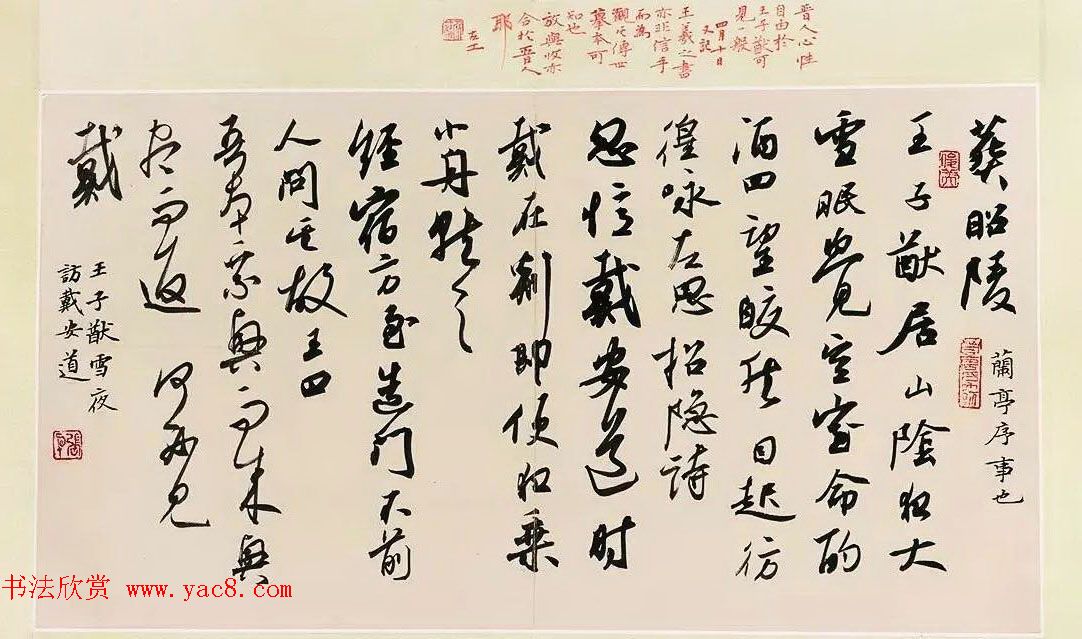 晋人心性
自由於
王子猷可
見一般
四月十日
又記
王羲之書
亦非信手
而為
觀其傳世
摹本可
知也
放與收亦
合於晋人
耶
葬昭陵
蘭亭序事也
王子猷居山陰夜大
雪眠覺室命酌
酒四望皎然因起彷
徨詠左思招隐詩
忽憶戴安道时
戴在剡即便夜乘
小舟就之
經宿方至造门不前
人問其故王曰
吾本乘興而来興
盡而返何必見
戴
王子猷雪夜
訪戴安道
书法欣赏 www.yac8.com